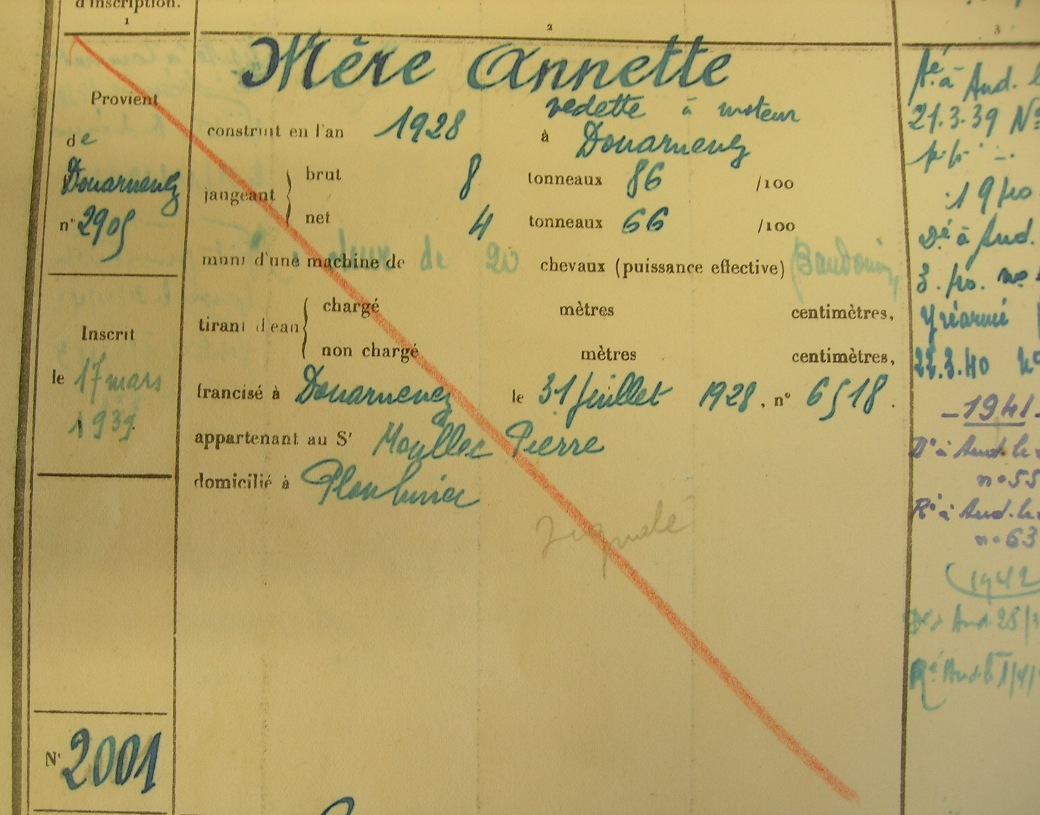 d'inscription.
1
2
3
Provient
de
Douarnenez
n° 2905
Inscrit
le 17 mars
1939
N° 2001
Mère Annette
vedette à moteur
construit en l'an 1928 à Douarnenez
jaugeant
brut 8 tonneaux 86 /100
net 4 tonneaux 66 /100
muni d'une machine de deux de 20 chevaux (puissance effective) Baudouin
tirant d'eau
chargé mètres centimètres,
non chargé mètres centimètres,
francisé à Douarnenez le 31 juillet 1928, n° 6518.
appartenant au Sr Moullec Pierre
domicilié à Plouhinec
Dé à Aud.
21.3.39 N°
19
Dé à Aud.
3.
Réarmé
22.3.40 n°
-1941-
Dé à Aud. le
n° 55
Ré à Aud. le
n° 63
1942
Dé à Aud 28/
Ré Aud. 1/4/